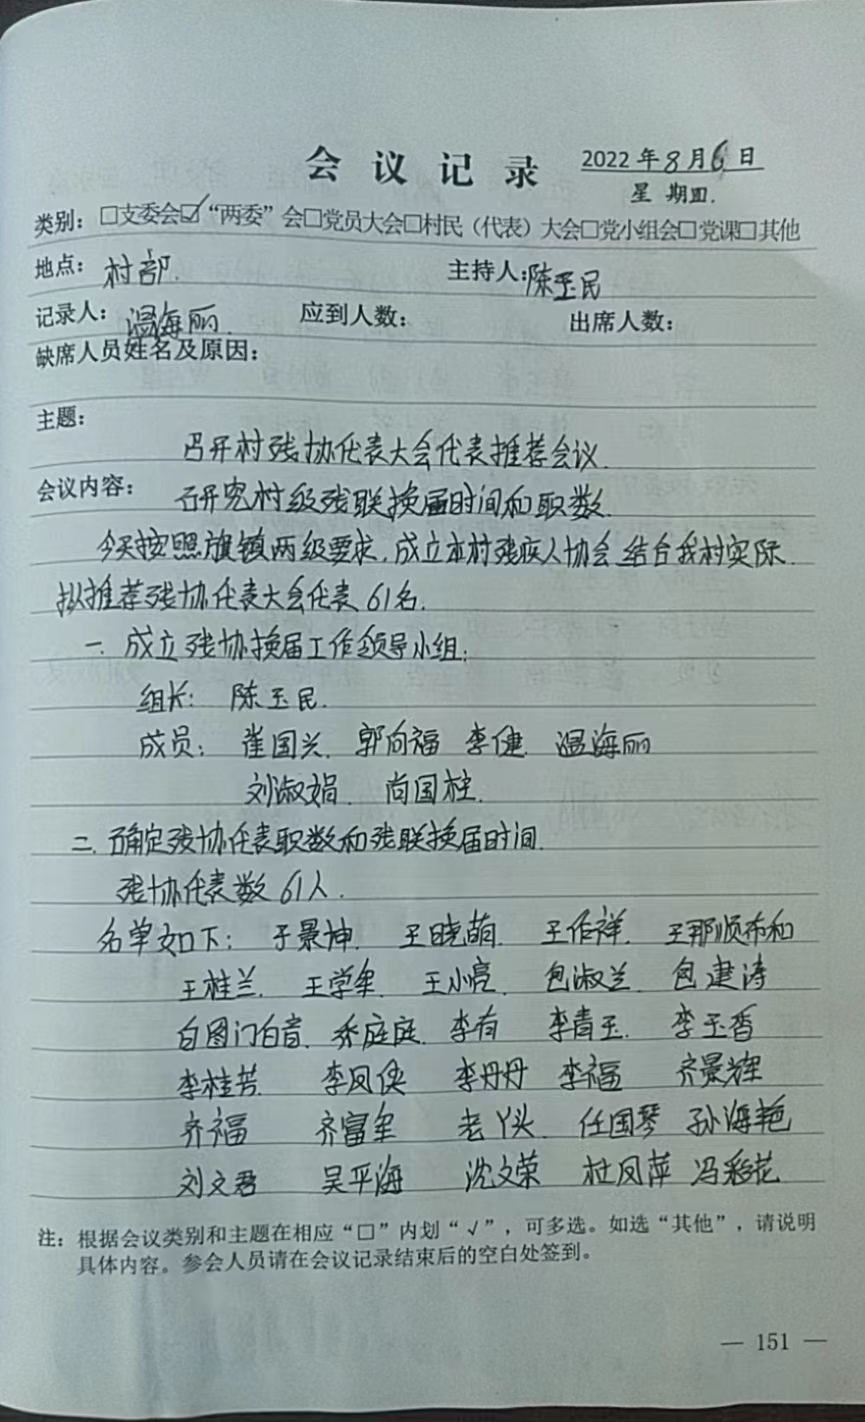 会议记录 2022年8月6日
星期四.
类别：□支委会☑“两委”会□党员大会□村民（代表）大会□党小组会□党课□其他
地点：村部. 主持人：陈玉民
记录人：温海丽. 应到人数： 出席人数：
缺席人员姓名及原因：
主题：
召开村残协代表大会代表推荐会议.
会议内容： 研究村级残联换届时间和职数.
今天按照旗镇两级要求,成立本村残疾人协会,结合我村实际.
拟推荐残协代表大会代表61名.
一.成立残协换届工作领导小组:
组长: 陈玉民.
成员: 崔国兴. 郭向福 李健. 温海丽
刘淑娟. 尚国柱.
二.确定残协代表职数和残联换届时间.
残协代表数61人.
名单如下: 于景坤. 王晓萌. 王作祥. 王那顺布和
王桂兰. 王学军. 王小亮. 包淑兰. 包建涛
白图门白音. 乔庭庭. 李有 李青玉. 李玉香
李桂芳. 李凤侠 李丹丹 李福 齐景辉
齐福 齐富军 老丫头. 任国琴 孙海艳
刘文君 吴平海 沈文荣 杜凤萍 冯彩花
注：根据会议类别和主题在相应“□”内划“√”，可多选。如选“其他”，请说明
具体内容。参会人员请在会议记录结束后的空白处签到。
— 151 —